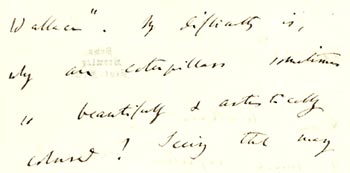 Wallace". My difficulty is,
why are caterpillars sometimes
so beautifully & artistically
coloured? Seeing that many